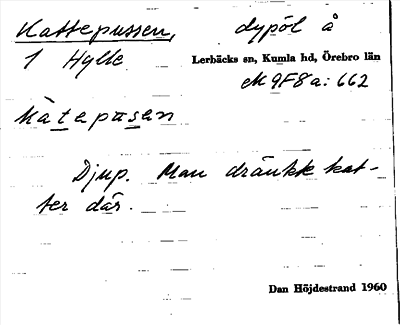 Kattepussen, dypöl å
1 Hylle Lerbäcks sn, Kumla hd, Örebro län
ek 9F8a: 662
kàtepusen
Djup. Man dränkk kat-
ter där.
Dan Höjdestrand 1960